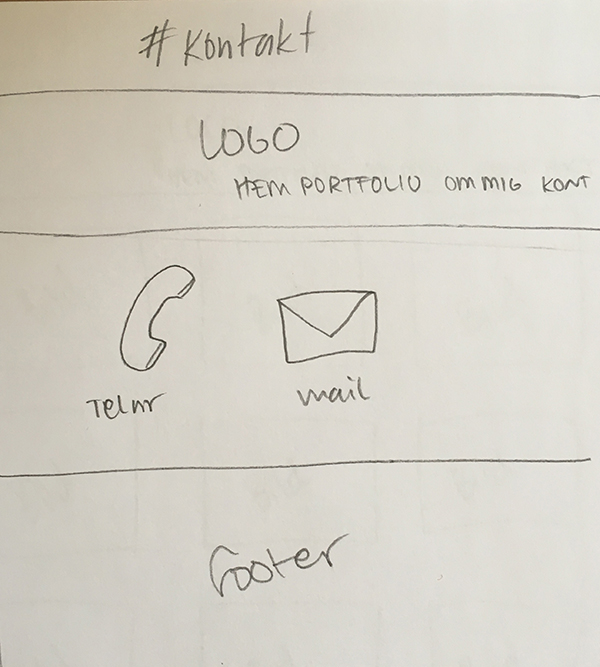 #Kontakt
LOGO
HEM PORTFOLIO OM MIG KONT
Telnr mail
Footer